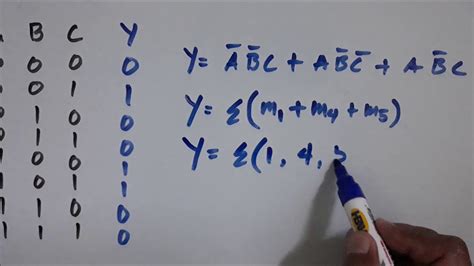 B C Y
0 0 0
0 1 1
1 0 0
1 1 0
0 0 1
0 1 1
1 0 0
1 1 0
Y = A̅ B̅ C + A B̅ C̅ + A B̅ C
Y = Σ(m₁ + m₄ + m₅)
Y = Σ(1, 4,